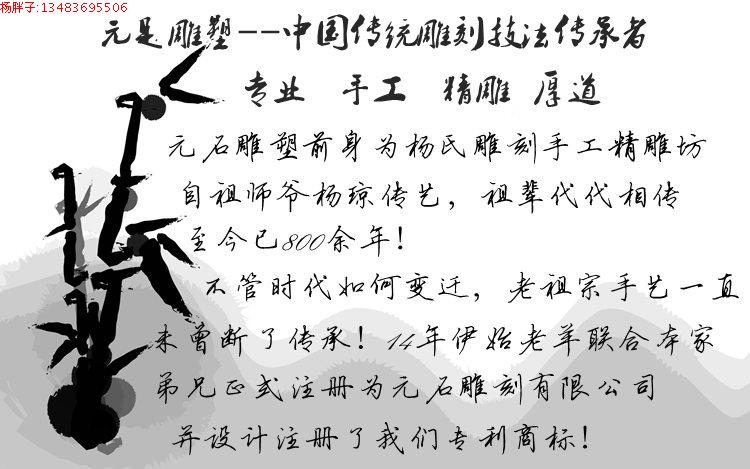 杨胖子:13483695506
元是雕塑--中国传统雕刻技法传承者
专业 手工 精雕 厚道
元石雕塑前身为杨氏雕刻手工精雕坊
自祖师爷杨琼传艺，祖辈代代相传
至今已800余年！
不管时代如何变迁，老祖宗手艺一直
未曾断了传承！14年伊始老羊联合本家
弟兄正式注册为元石雕刻有限公司
并设计注册了我们专利商标！